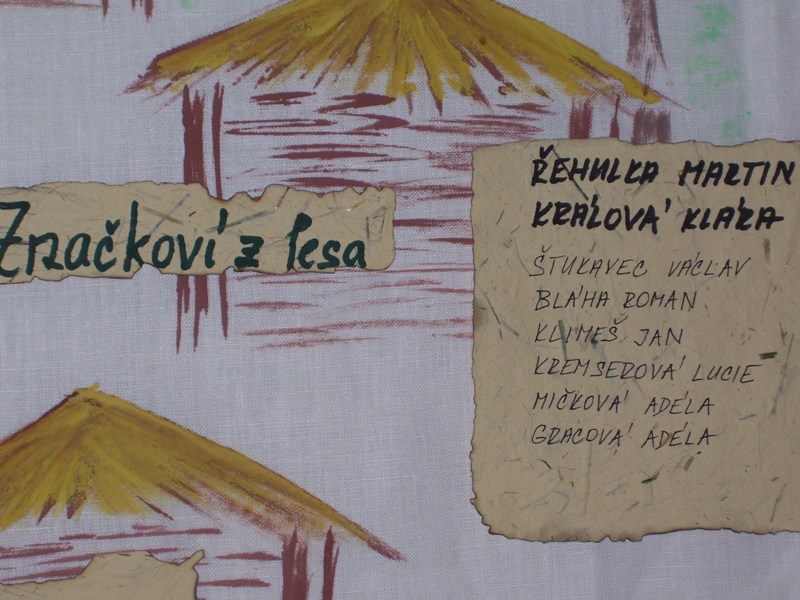 Značkoví z lesa
ŘEHULKA MARTIN
KRÁLOVÁ KLÁRA
ŠTUKAVEC VÁCLAV
BLÁHA ROMAN
KLIMEŠ JAN
KREMSEROVÁ LUCIE
MIČKOVÁ ADÉLA
GRACOVÁ ADÉLA